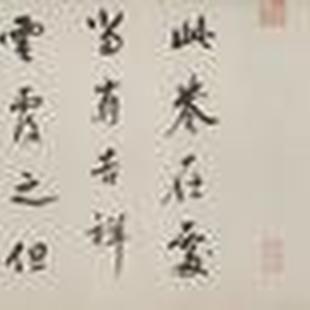 此卷在處
當有吉祥
雲霞之但